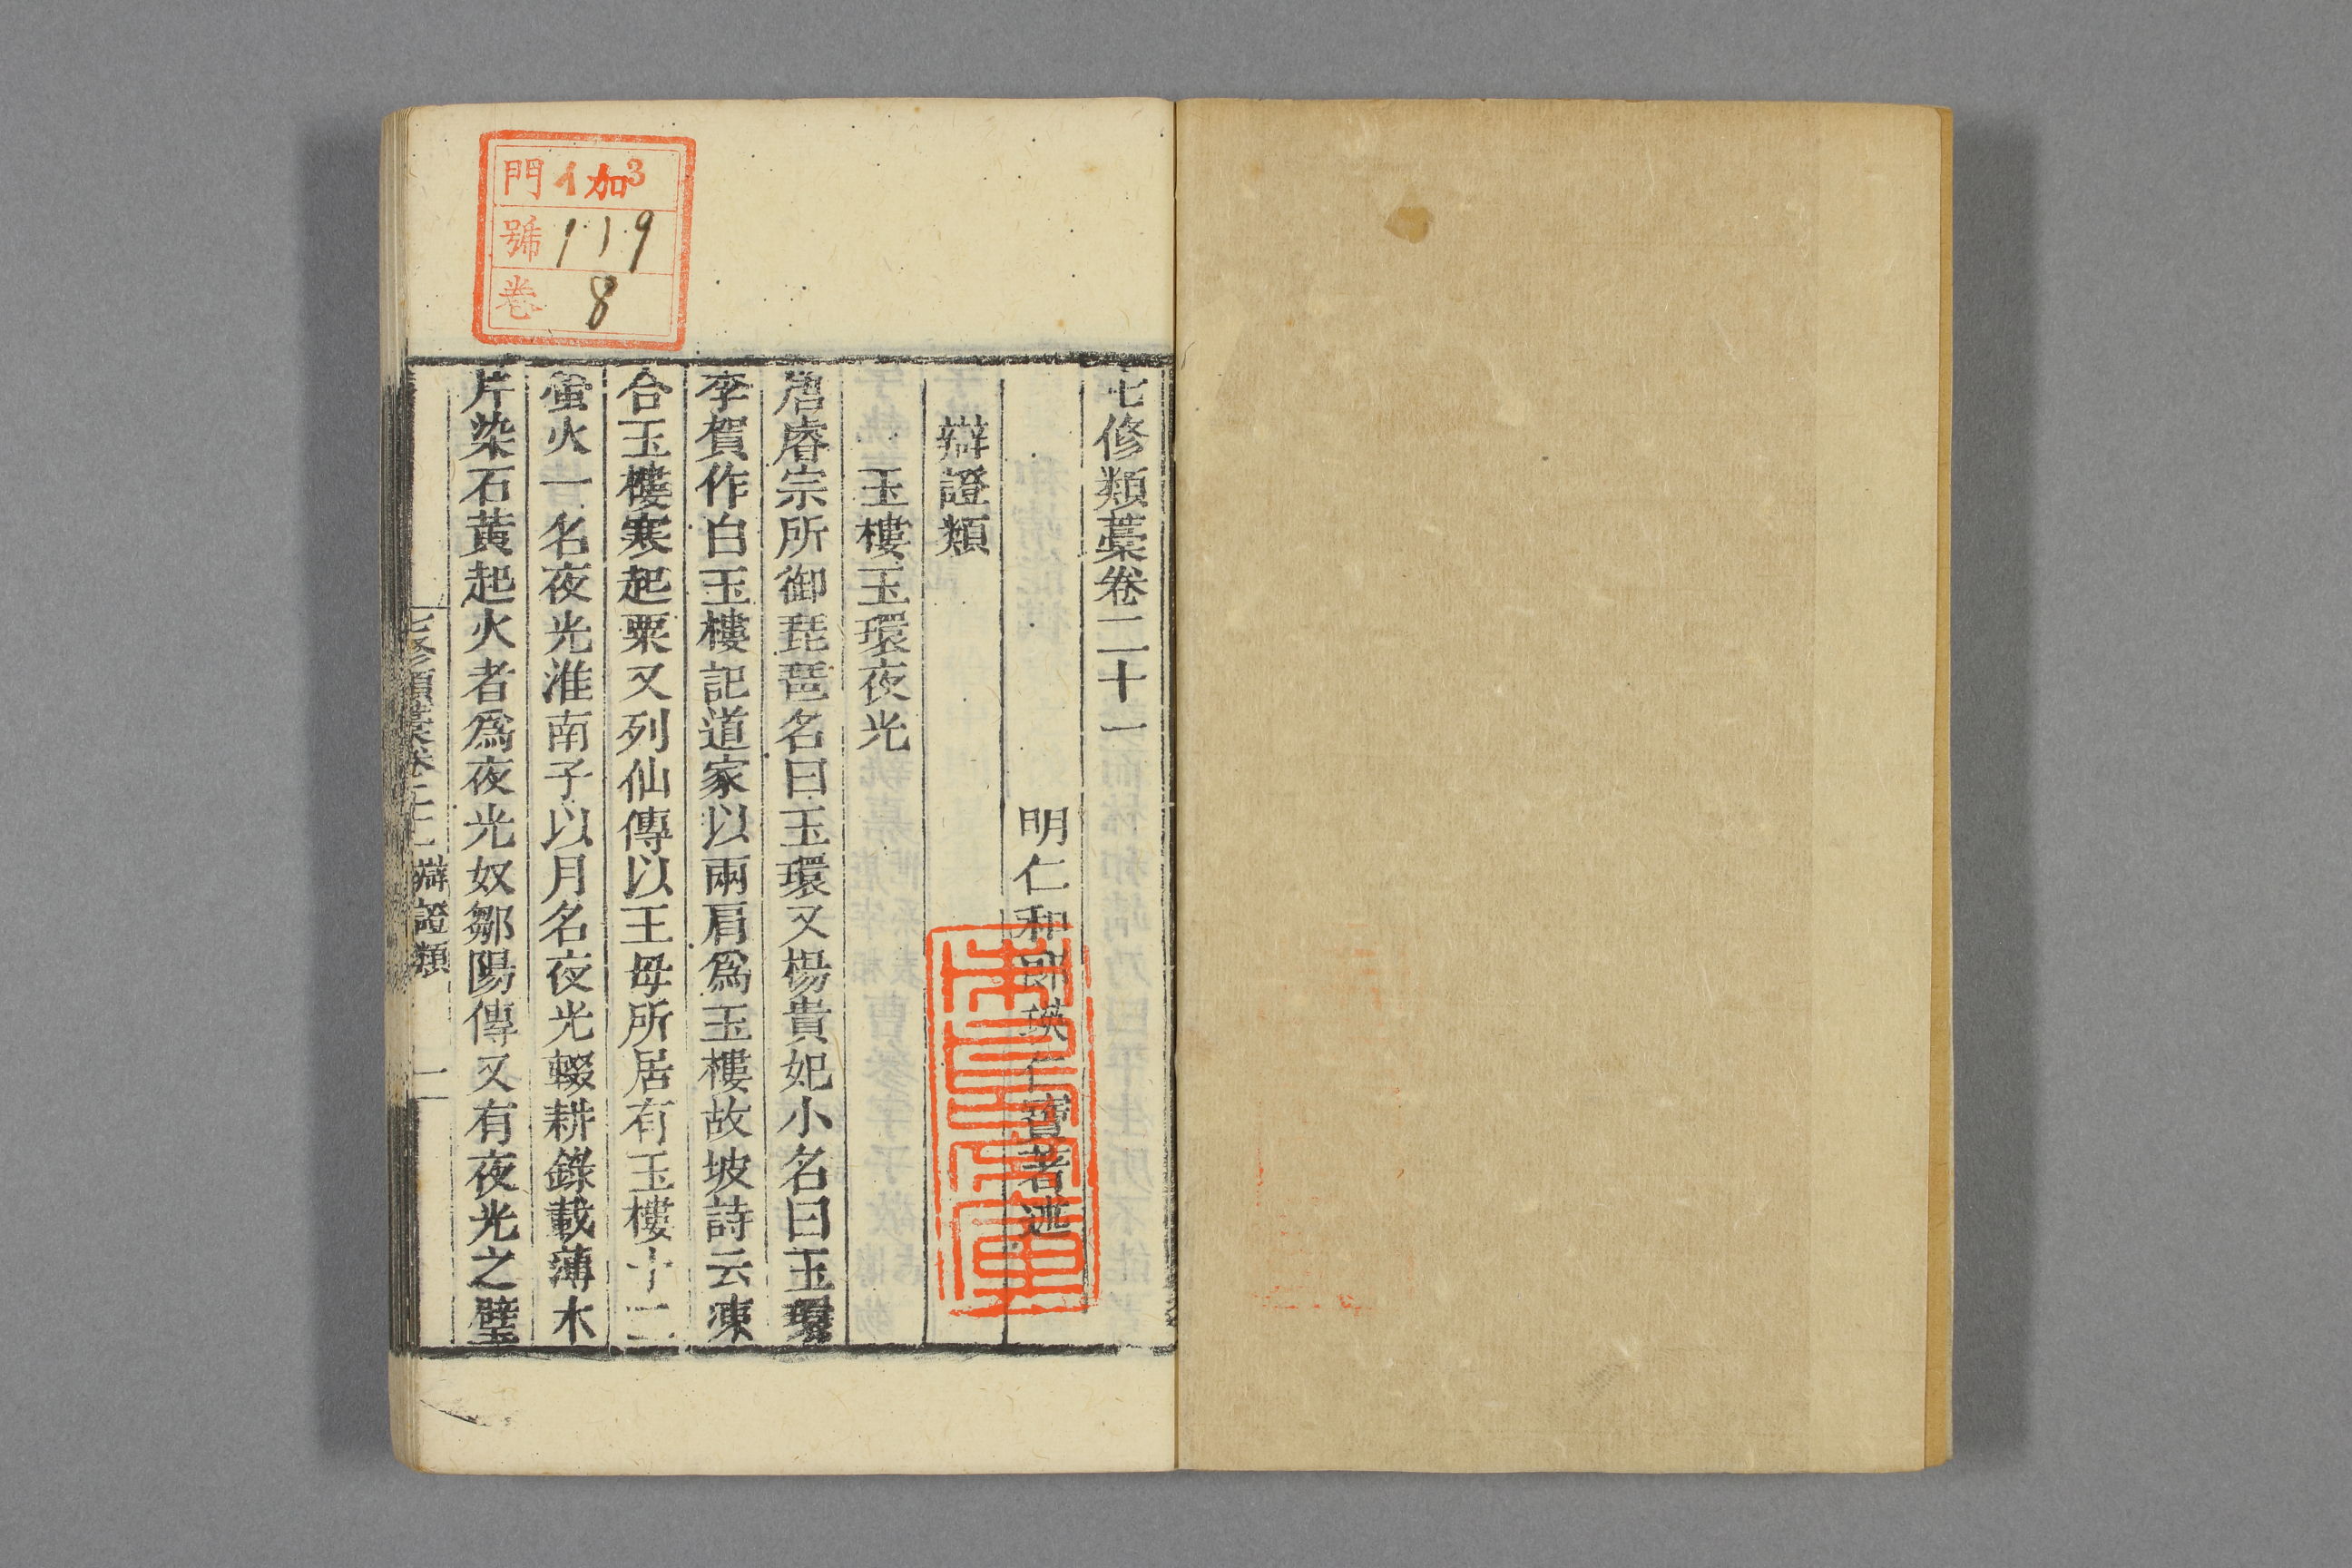 門 イ 加3
號 119
卷 8
七修類藁卷二十一
明仁和郎瑛仁寶著述
辯證類
玉樓玉環夜光
唐睿宗所御琵琶名曰玉環又楊貴妃小名曰玉環
李賀作白玉樓記道家以兩肩爲玉樓故坡詩云凍
合玉樓寒起粟又列仙傳以王母所居有玉樓十二
螢火一名夜光淮南子以月名夜光輟耕錄載薄木
片染石黄起火者爲夜光奴鄒陽傳又有夜光之璧
七修類藁卷二十一 辯證類 一